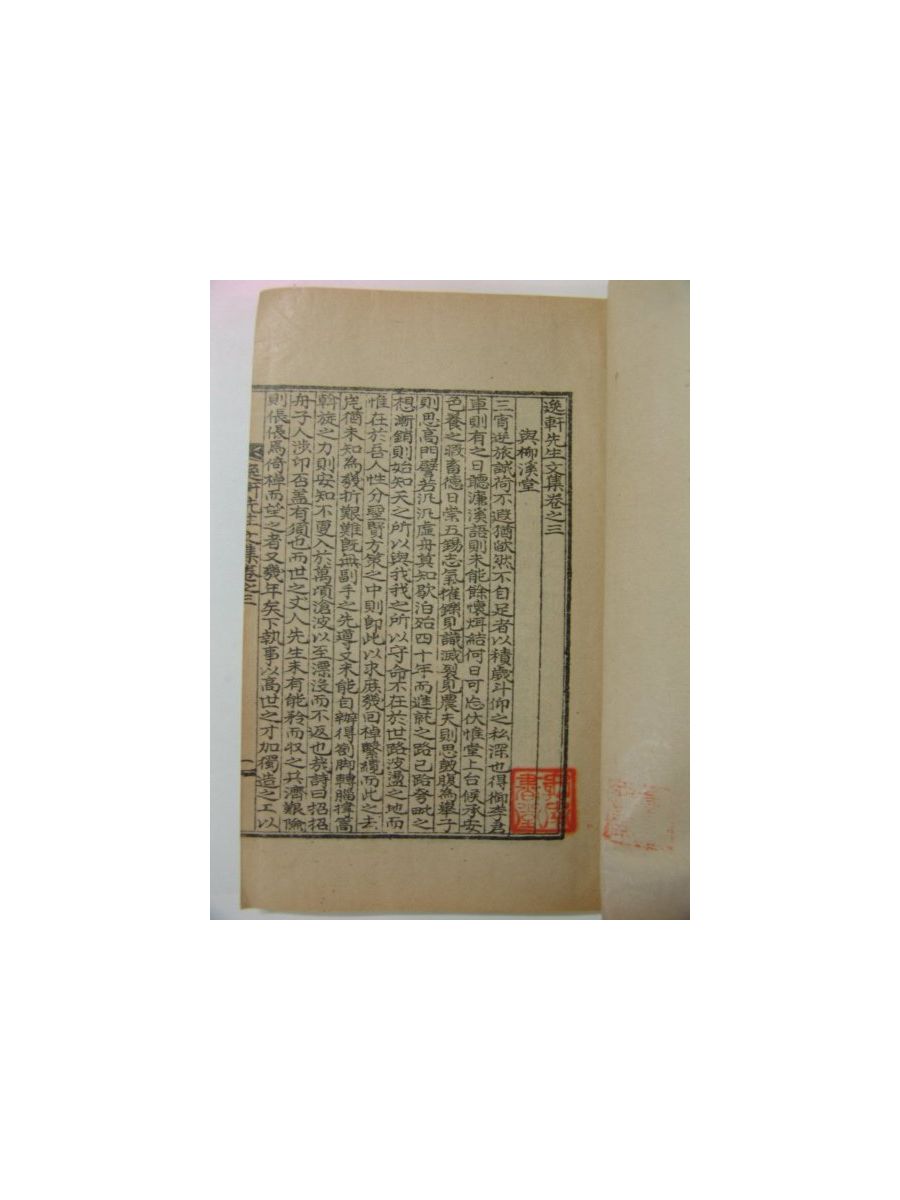 逸軒先生文集卷之三
與柳溪堂
三宵逆旅誠荷不遐猶歉然不自足者以積歲斗仰之私深也得御李君
車則有之日聽濂溪語則未能餘懷耿結何日可忘伏惟堂上台候承安
色養之暇畜德日崇五錫志氣摧鑠見識滅裂見農夫則思鼓腹為舉子
則思高門譬若汎汎虛舟莫知歇泊殆四十年而進就之路已踏夸毗之
想漸銷則始知天之所以與我我之所以守命不在於世路波盪之地而
惟在於吾人性分聖賢方策之中則卽此以求庶幾回棹繫纜而此之去
岸猶未知為幾折艱難旣無副手之先導又未能自辦得劄脚轉腦撐篙
斡旋之力則安知不更入於萬頃滄波以至漂沒而不返也哉詩曰招招
舟子人涉卬否盖有須也而世之丈人先生未有能矜而收之共濟艱險
則倀倀焉倚棹而望之者又幾年矣下執事以高世之才加獨造之工以
逸軒先生文集卷之三
一